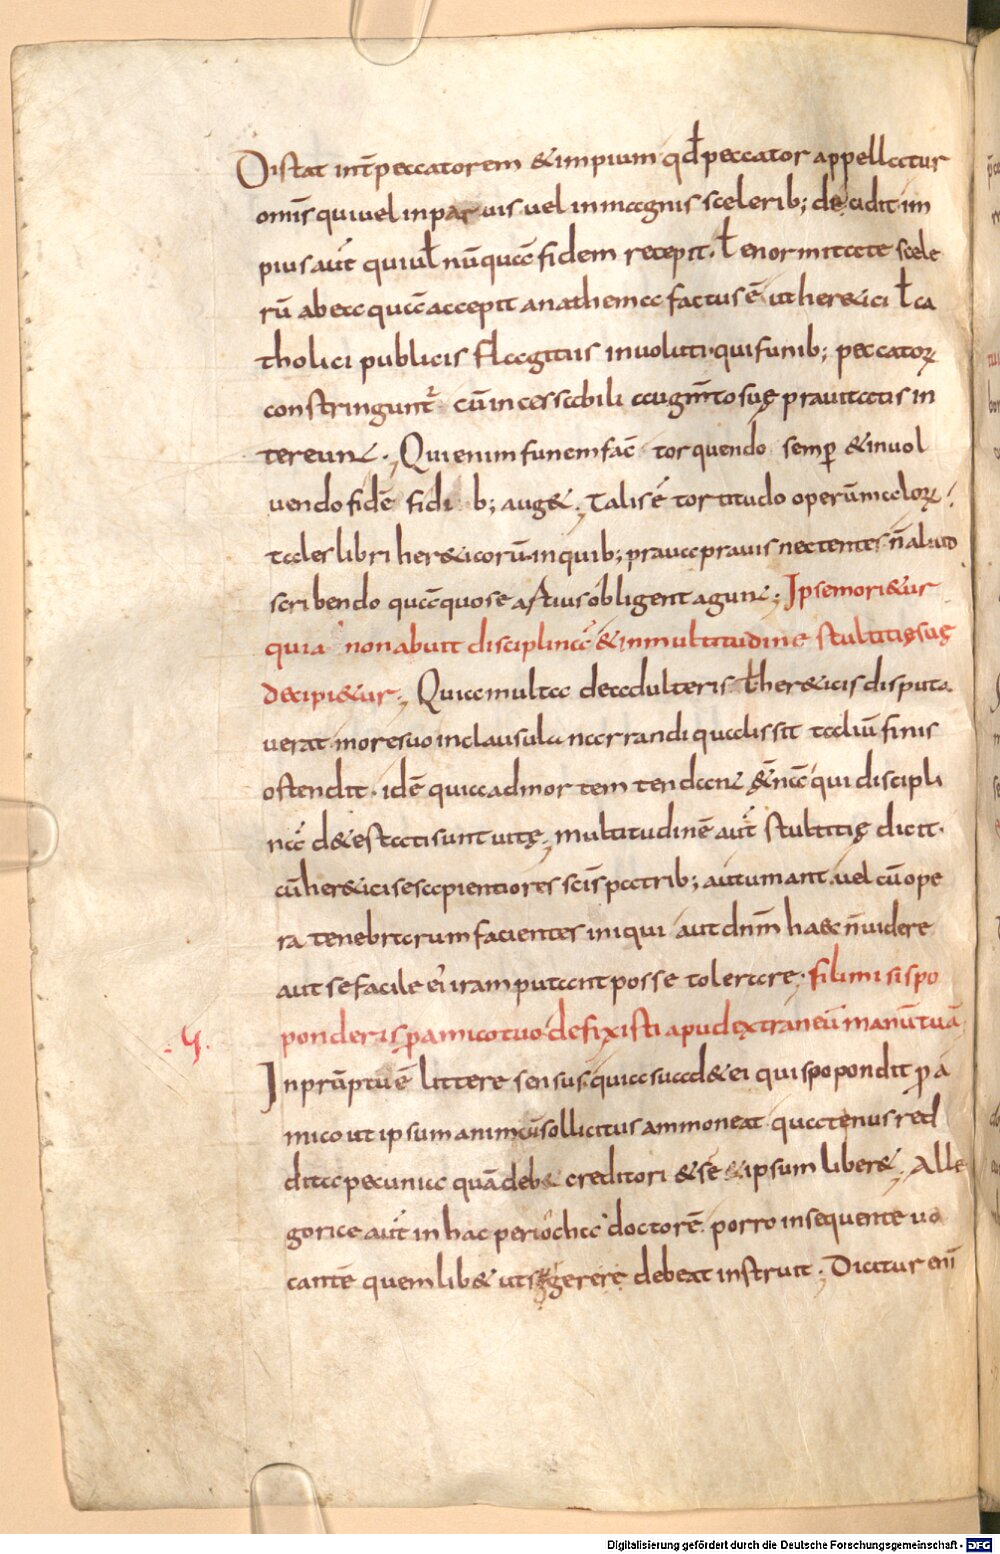 Distat int̄ peccatorem & impium qd̄ peccator appellatur
om̄is qui uel in paruis uel in magnis scelerib; decidit im
pius aut̄ qui ul̄ nūquā fidem recepit · l̄ enormitate scele
rū ab ea quā accepit anathema factus ē ut her&ici l̄ ca
tholici publicis flagitiis inuoluti · qui funib; peccatoꝝ
constringunt᷑ cū incessabili augm̄to suę prauitatis in
tereunt · Qui enim funem fac̄ torquendo semp̲ & inuol
uendo fidē fidib; aug& · Talis ē tortitudo operū maloꝝ
tales libri her&icorū in quib; praua prauis nectentes n̄ aliud
scribendo quā quo se astrius obligent agunt · Ipse mori&ur
quia non abuit disciplinā & in multitudine stultitię suę
decipi&ur · Quia multa de adulteris l̄ her&icis disputa
uerat more suo in clausula narrandi quali s sit taliū finis
ostendit · idē quia ad mortem tendant &̄nā qui discipli
nā d&estati sunt uitę · multitudinē aut̄ stultitię dicit ·
cū her&ici se sapientiores sc̄is patrib; autumant · uel cū ope
ra tenebrarum facientes iniqui aut dn̄m haec n̄ uidere
aut se facile ei iram putant posse tolerare · fili mi si spo
ponderis ꝓ amico tuo defixisti apud extraneū manū tuā
· G ·
In prūptu ē littere sensus quia suad& ei qui spopondit ꝓ a
mico ut ipsum animū sollicitus ammoneat quatenus red
dita pecunia quā deb& creditori & se & ipsum liber& · Alle
gorice aut̄ in hac periocha doctorē porro in sequente uo
cantē quemlib& ut se gerere debeat instruit · Dicitur eni̅
Digitalisierung gefördert durch die Deutsche Forschungsgemeinschaft - DFG